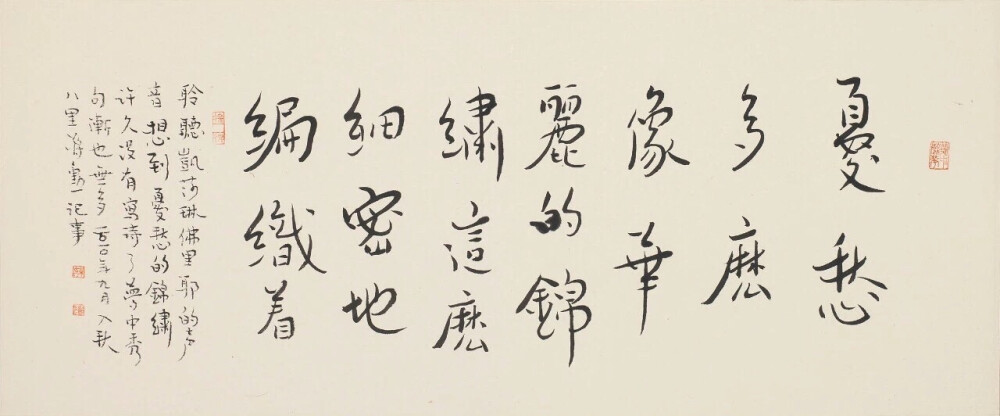 憂愁
多麼
像華
麗的錦
繡這麼
細密地
編織着
聆聽凱莎琳佛里耶的声
音想到憂愁的錦繡
许久没有寫诗了夢中秀
句漸也無多 百年九月入秋
八里蔣勳一记事